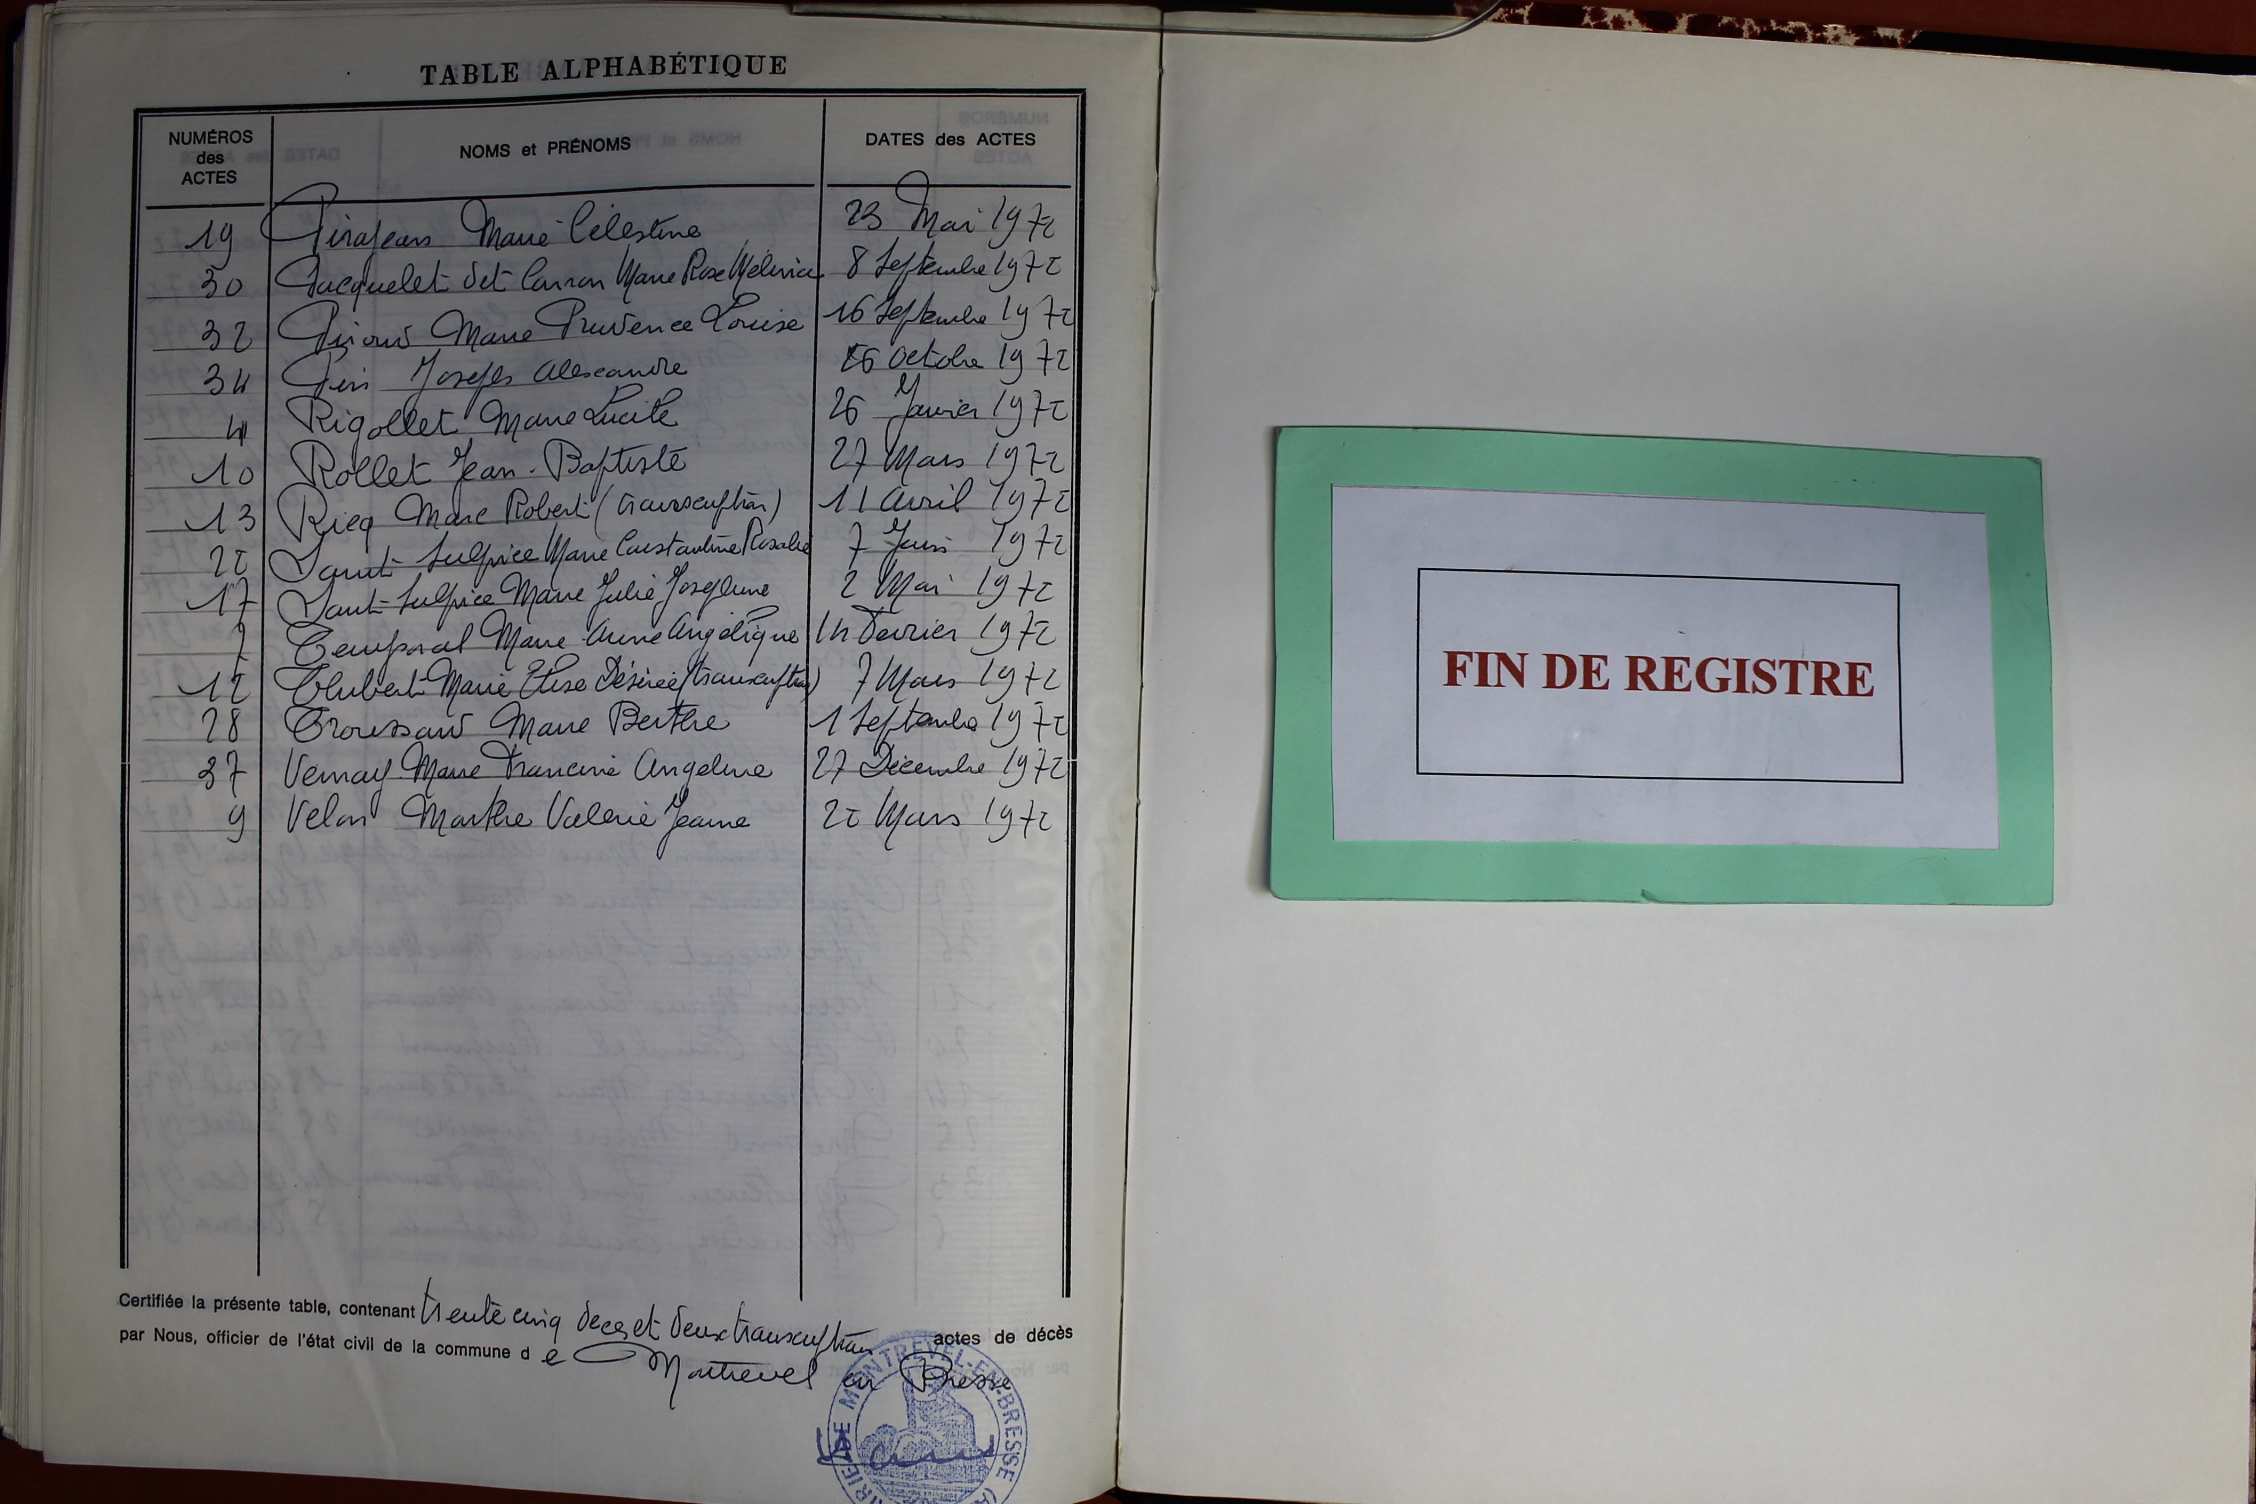 TABLE ALPHABÉTIQUE
NUMÉROS des ACTES NOMS et PRÉNOMS DATES des ACTES
19 Marie Célestine 23 Mai 1972
30 dit Carron Marie Rose 8 Septembre 1972
32 Marie Prudence Louise 16 Septembre 1972
34 Joseph Alexandre Octobre 1972
4 Rigollet Marie Lucile 26 Janvier 1972
10 Rollet Jean-Baptiste 27 Mars 1972
13 Ricq Marc Robert (transcription) 11 Avril 1972
22 Saint-Sulpice Marie Constantine Rosalie 7 Juin 1972
17 Saint-Sulpice Marie Julie Joséphine 2 Mai 1972
7 Temporal Marie-Anne Angélique 14 Fevrier 1972
12 Marie Elise Désirée (transcription) 7 Mars 1972
28 Troussard Marie Berthe 1 Septembre 1972
37 Vernay Marie Francine Angeline 27 Décembre 1972
9 Velon Marthe Valerie Jeanne 22 Mars 1972
Certifiée la présente table, contenant trente cinq deces et deux transcription actes de décès
par Nous, officier de l'état civil de la commune de Montrevel en Bresse
MAIRIE DE MONTREVEL-EN-BRESSE
FIN DE REGISTRE